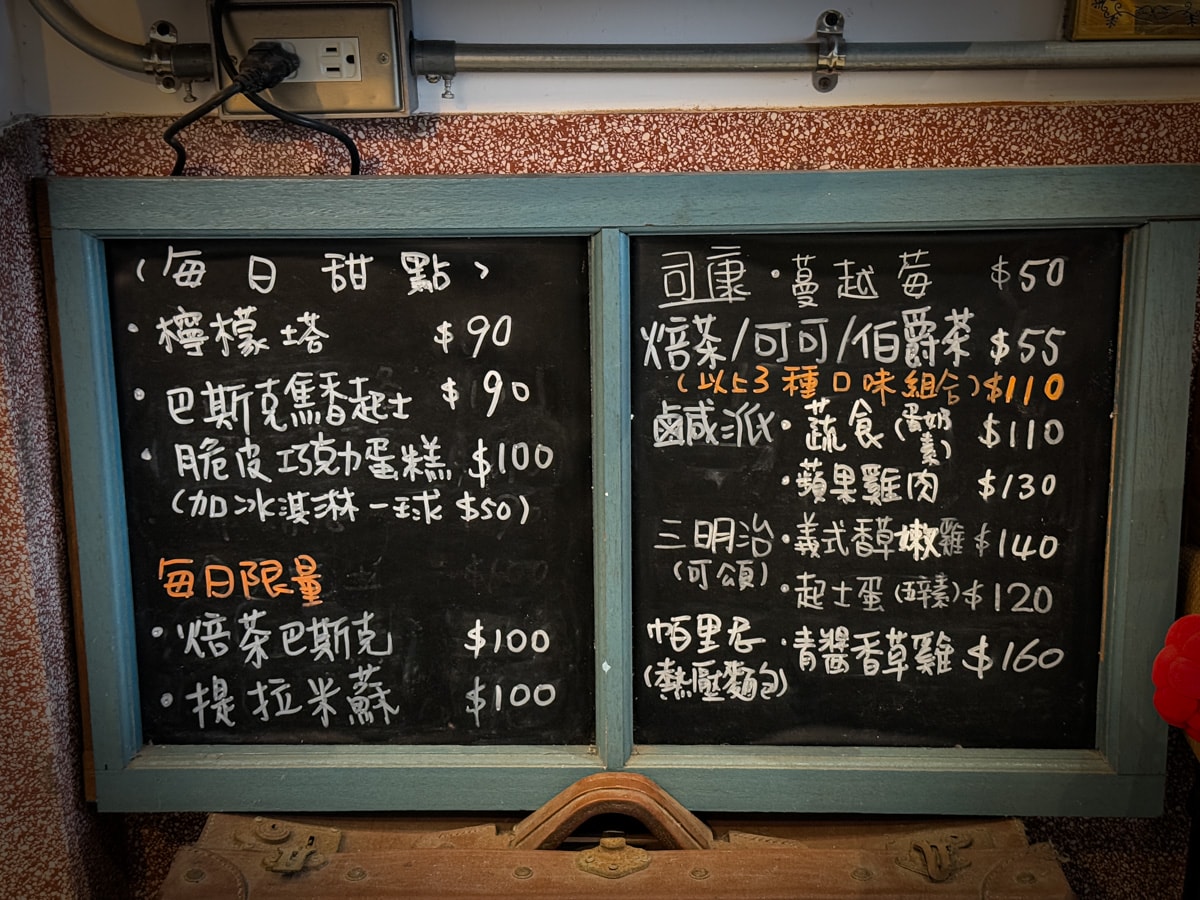 （每日甜點）
・檸檬塔 $90
・巴斯克焦香起士 $90
・脆皮巧克力蛋糕 $100
(加冰淇淋一球 $50)
每日限量
・焙茶巴斯克 $100
・提拉米蘇 $100
司康・蔓越莓 $50
焙茶/可可/伯爵茶 $55
(以上3種口味組合)$110
鹹派・蔬食(蛋奶素) $110
・蘋果雞肉 $130
三明治・義式香草嫩雞 $140
(可頌)
・起士蛋(五辛素) $120
帕里尼・青醬香草雞 $160
(熱壓麵包)